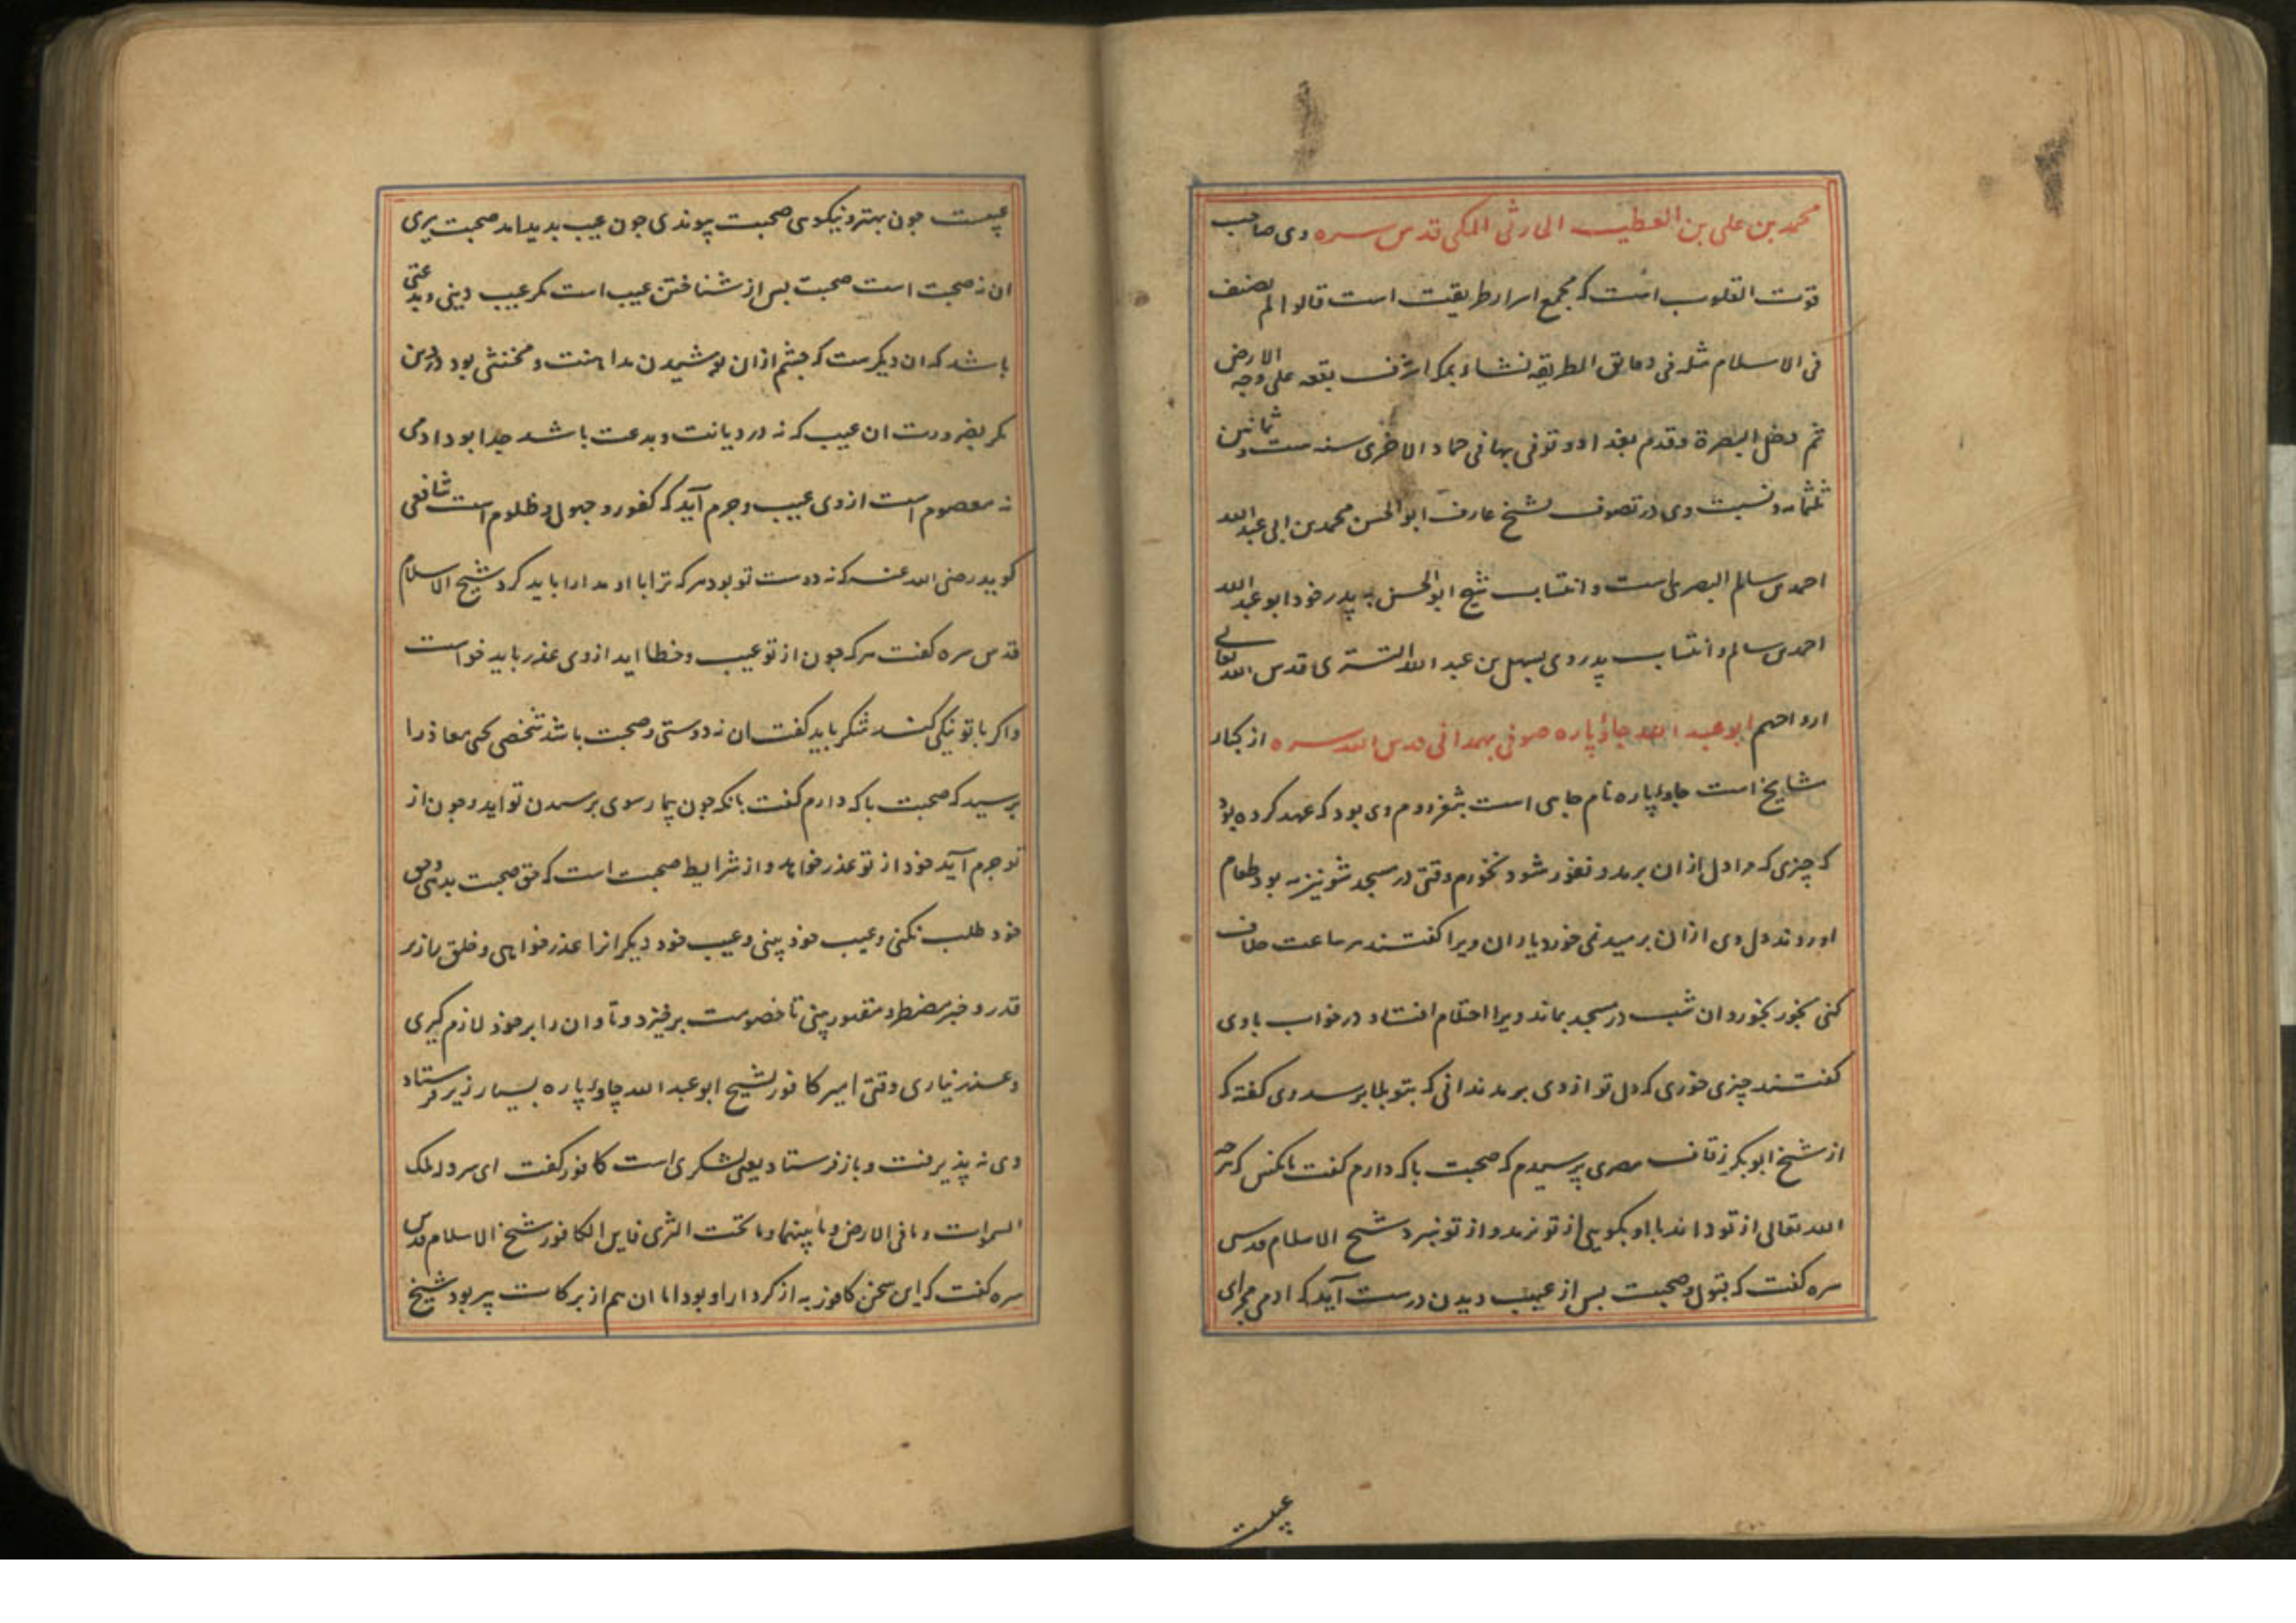 محمد بن علی بن العطیب الحارثی المکی قدس سره وی صاحب
قوت القلوب است که مجمع اسرار طریقت است قالوا لم یصنف
فی الاسلام مثله فی دقایق الطریقه نشاء بمکه اشرف بقعه علی وجه الارض
ثم دخل البصرة و قدم بغداد و توفی بها فی جماد الاخری سنه ست و ثمانین
ثلثمائه و نسبت وی در تصوف بشیخ عارف ابوالحسن محمد بن ابی عبدالله
احمد بن سالم البصری است و انتساب شیخ ابوالحسن به پدر خود ابو عبدالله
احمد بن سالم و انتساب پدر وی بسهل بن عبدالله التستری قدس الله تعالی
ارواحهم ابو عبدالله جاوپاره صوفی همدانی قدس الله سره از کبار
مشایخ است جاوپاره نام جایی است بثغر روم وی بود که عهد کرده بود
که چیزی که مرا دل از ان برمد و نفور شود نخورم وقتی در مسجد شونیزیه بود طعام
اوردند دل وی از ان برمید نمی خورد یاران ویرا کفتند هر ساعت خلاف
کنی بخور بخورد ان شب در مسجد بماند ویرا احتلام افتاد در خواب با وی
کفتند چیزی خوری که دل تو از وی برمد ندانی که بتو بلا برسد وی کفته که
از شیخ ابوبکر زقاق مصری پرسیدم که صحبت با که دارم کفت بانکس که هرچه
الله تعالی از تو داند با او بکویی از تو نرمد و از تو نبرد شیخ الاسلام قدس
سره کفت که قبول و صحبت بس از عیب دیدن درست آید که ادمی مجرای
عیبست
عیبست جون بهتر و نیکوی صحبت پیوندی جون عیب بدید اید صحبت ببری
ان نه صحبت است صحبت بس از شناختن عیب است مکر عیب دینی و بدعتی
باشد که ان دیکرست که جشم از ان پوشیدن مداهنت و مخنثی بود در دین
مکر بضرورت ان عیب که نه در دیانت و بدعت باشد جدا بود ادمی
نه معصوم است از وی عیب و جرم آید که کفور و جهول و ظلوم است شافعی
کوید رضی الله عنه که نه دوست تو بود هر که ترا با او مدارا باید کرد شیخ الاسلام
قدس سره کفت هر که جون از تو عیب و خطا اید از وی عذر باید خواست
و اکر با تو نیکی کند شکر باید کفت ان نه دوستی و صحبت باشد شخصی یحیی معاذ را
پرسید که صحبت با که دارم کفت بانکه جون بیمار سوی برسیدن تو اید و جون از
تو جرم آید خود از تو عذر خواهد و از شرایط صحبت است که حق صحبت بدهی و حق
خود طلب نکنی و عیب خود بینی و عیب خود دیکرانرا عذر خواهی و خلق را زیر
قدر و جبر مضطر و مقهور بینی تا خصومت برخیزد و تاوان را بر خود لازم کیری
و عذر نیاری وقتی امیر کافور بشیخ ابو عبدالله جاوپاره بسیار زیر فرستاد
وی نه پذیرفت و باز فرستاد یعنی لشکری است کافور کفت ای سرد له ملک
السموات و ما فی الارض و ما بینهما و ما تحت الثری فاین الکافور شیخ الاسلام قدس
سره کفت که این سخن کافور به از کردار او بود اما ان هم از برکات پیر بود شیخ